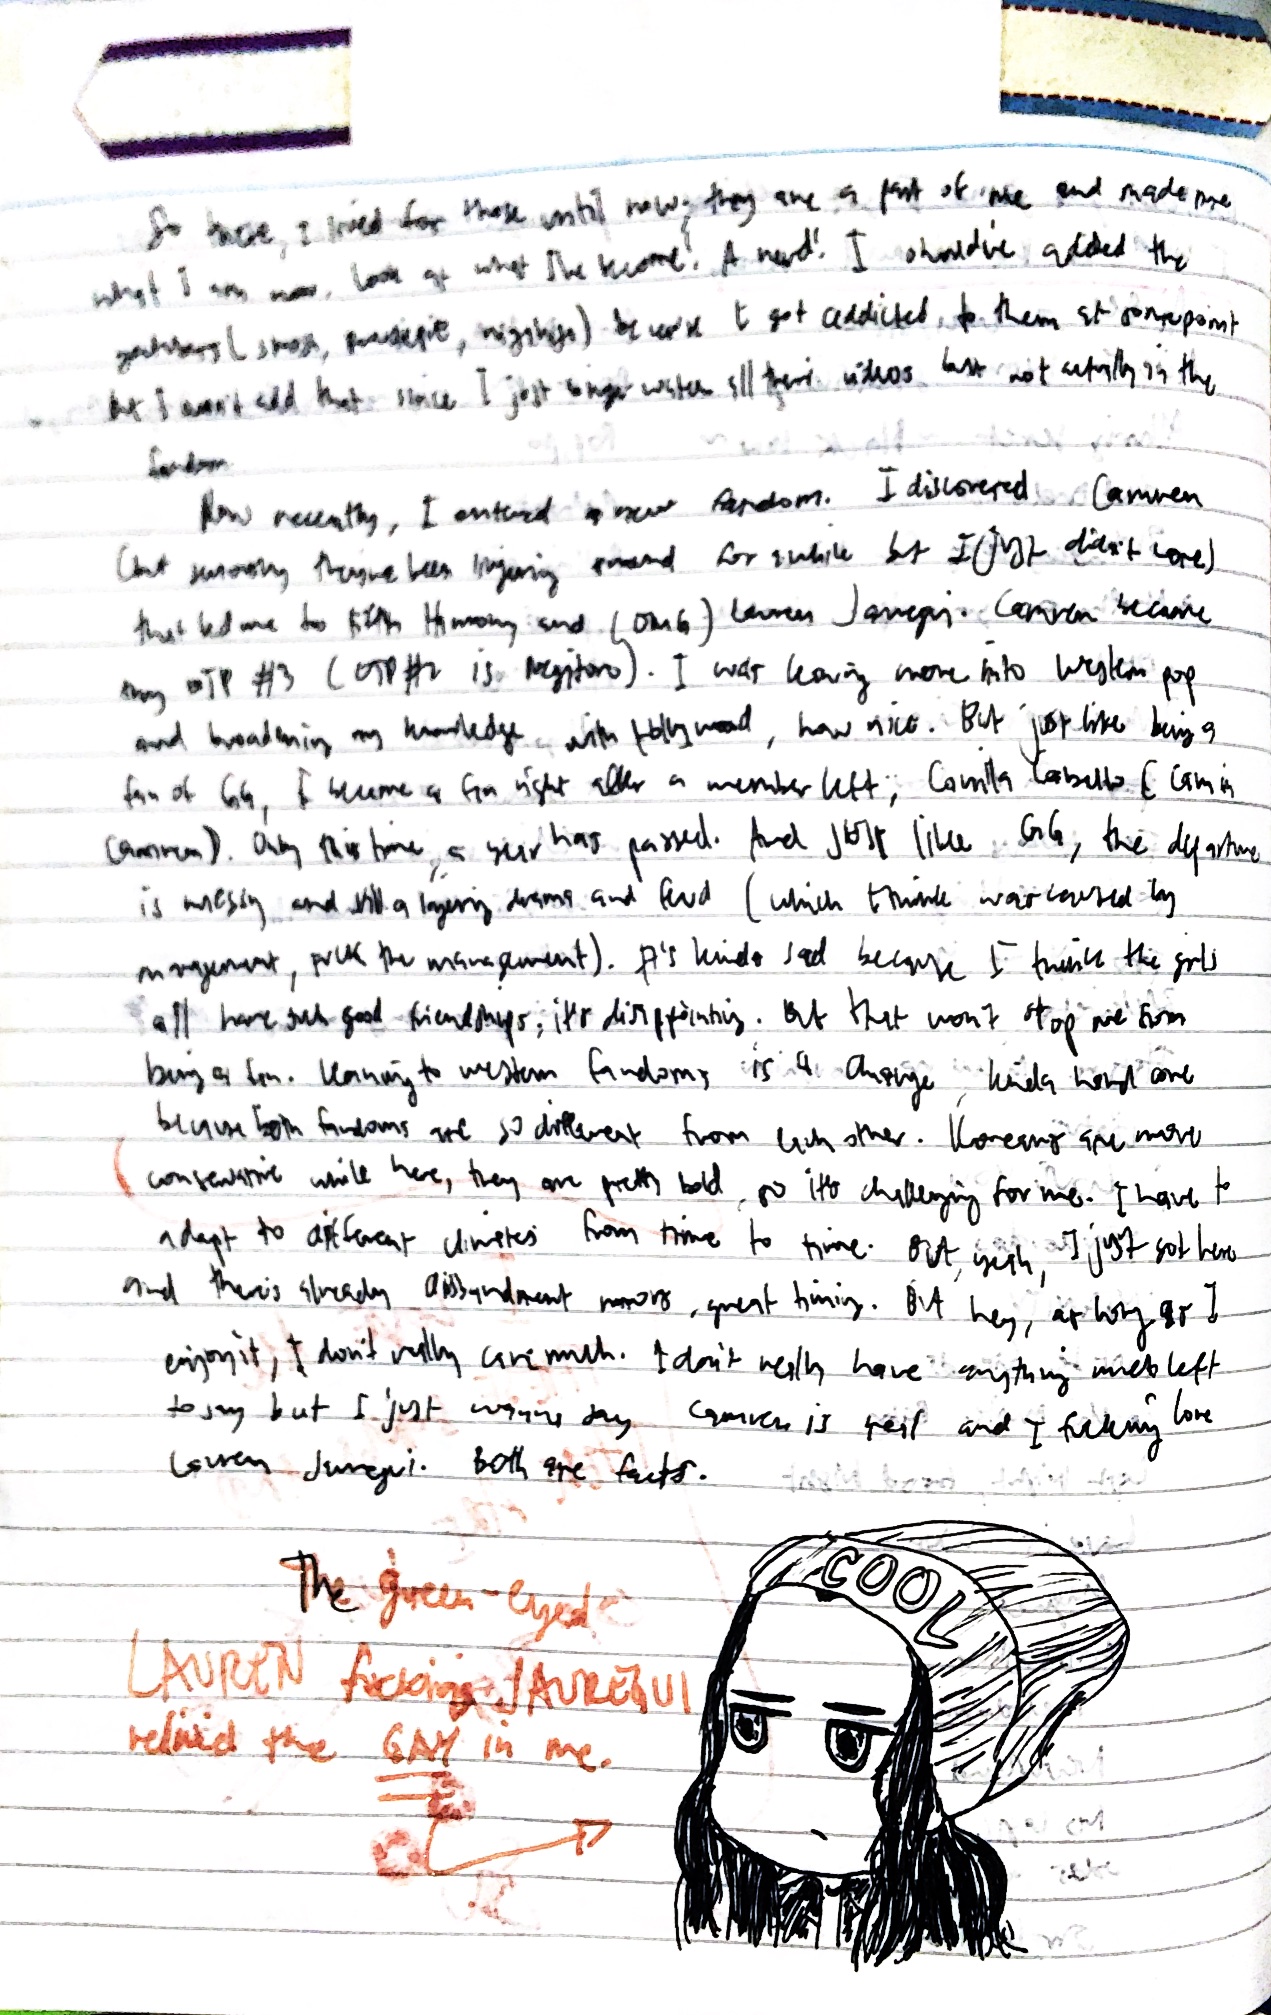 So there, I lived for those until now; they are a part of me and made me
what I am now. Look at what I've become! A nerd! I should've added the
youtubers (smosh, pewdiepie, nigahiga) because I got addicted to them at some point
but I won't add that since I just binge watch all their videos but not actually in the
fandom
Now recently, I entered a new fandom. I discovered Camren
(but seriously they've been lingering around for awhile but I just didn't care)
that led me to Fifth Harmony and (OMG) Lauren Jauregui. Camren became
my OTP #3 (OTP #2 is Negitoro). I was leaning more into western pop
and broadening my knowledge with Hollywood, how nice. But just like being a
fan of GG, I became a fan right after a member left; Camila Cabello (Cam in
Camren). Only this time, a year has passed. And just like GG, the departure
is messy and still a lingering drama and feud (which I think was caused by
management, fuck the management). It's kinda sad because I think the girls
all have such good friendships, it's disappointing. But that won't stop me from
being a fan. Leaning to western fandoms is a change, kinda hard one
because both fandoms are so different from each other. Koreans are more
conservative while here, they are pretty bold, so it's challenging for me. I have to
adapt to different climates from time to time. But, yeah, I just got here
and there's already disbandment rumors, great timing. But hey, as long as I
enjoy it, I don't really care much. I don't really have anything much left
to say but I just wanna say Camren is real and I fucking love
Lauren Jauregui. Both are facts.
The green-eyed
LAUREN fucking JAUREGUI
the GAY in me.
COOL